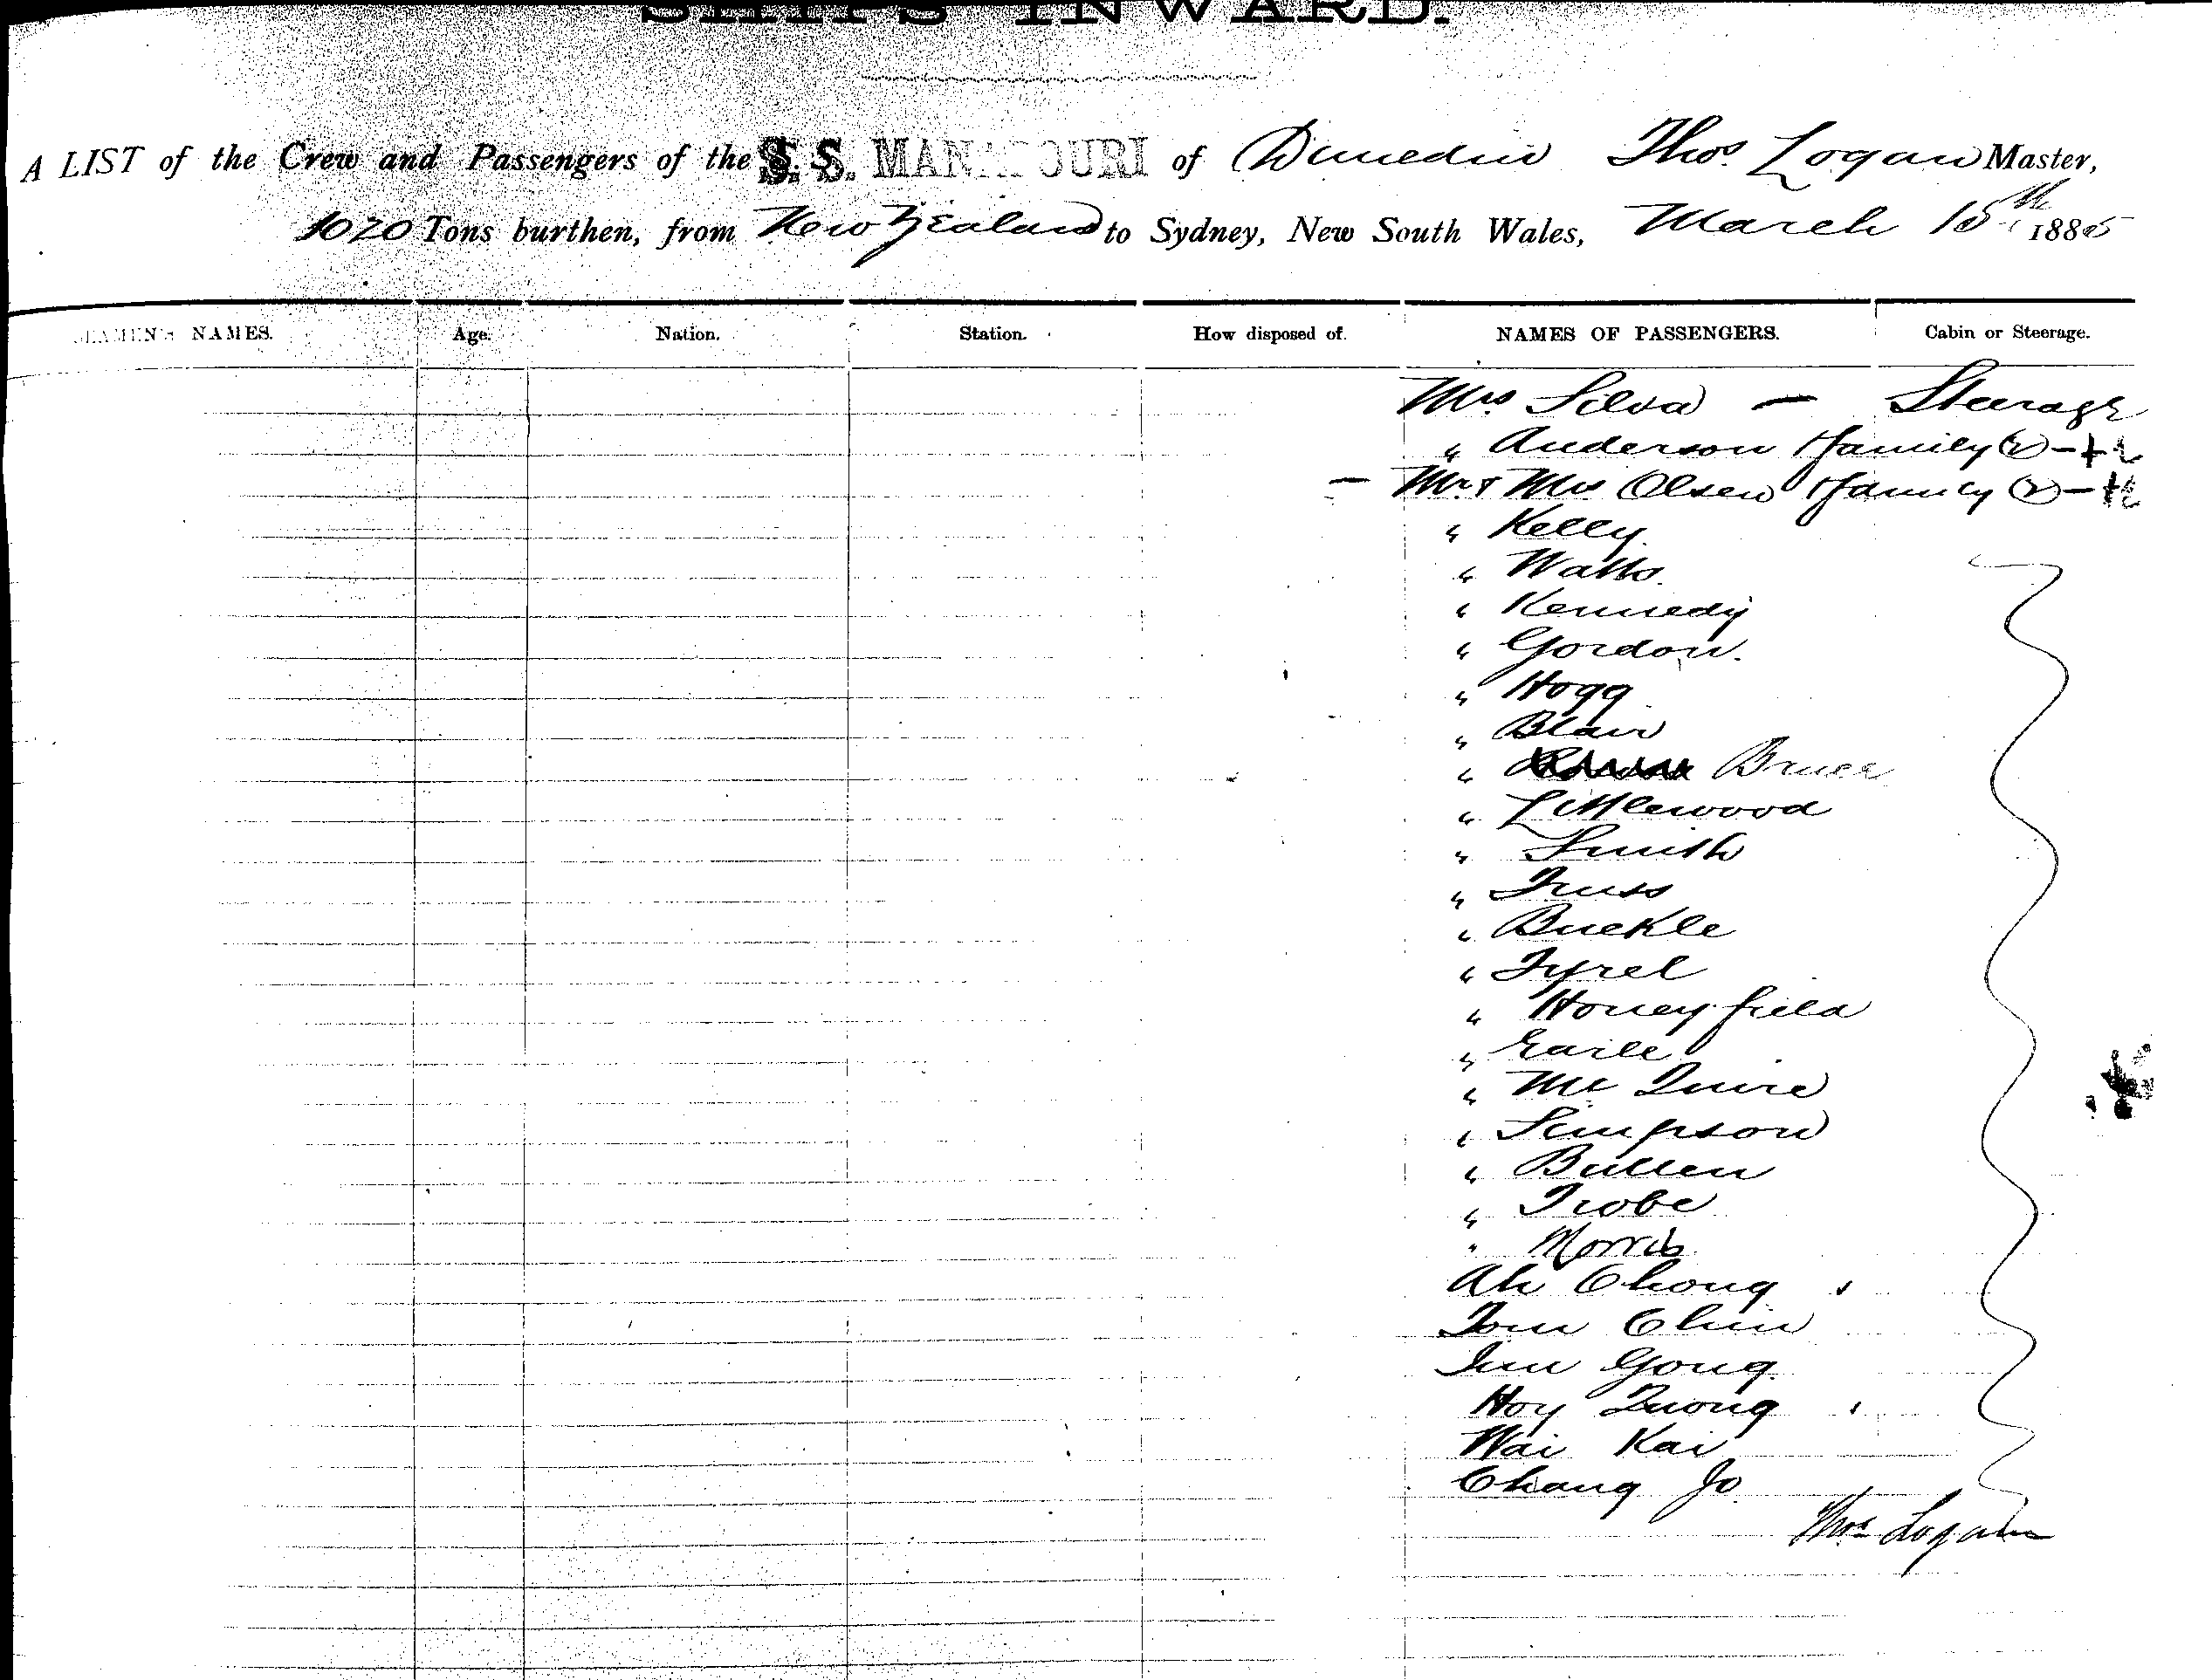 SHIPS INWARD.
A LIST of the Crew and Passengers of the S.S. MANAPOURI of Dunedin Thos. Logan Master,
1020 Tons burthen, from New Zealand to Sydney, New South Wales, March 15th 1885
SEAMEN'S NAMES. Age. Nation. Station. How disposed of. NAMES OF PASSENGERS. Cabin or Steerage.
Mrs Silva — Steerage
" Anderson & family (2) -
— Mr & Mrs Olsen & family (2) -
" Kelly.
" Watts.
" Kennedy
" Gordon.
" Hogg
" Blair
" Bruce
" Littlewood
" Smith
" Truss
" Buckle
" Tyrel
" Honeyfield
" Earle
" Mc Quire
" Simpson
" Bullen
" Trobe
" Morris
Ah Chong
Tom Chin
Jim Gong.
Hoy Quong
Wai Kai
Chang Jo.
Thos Logan